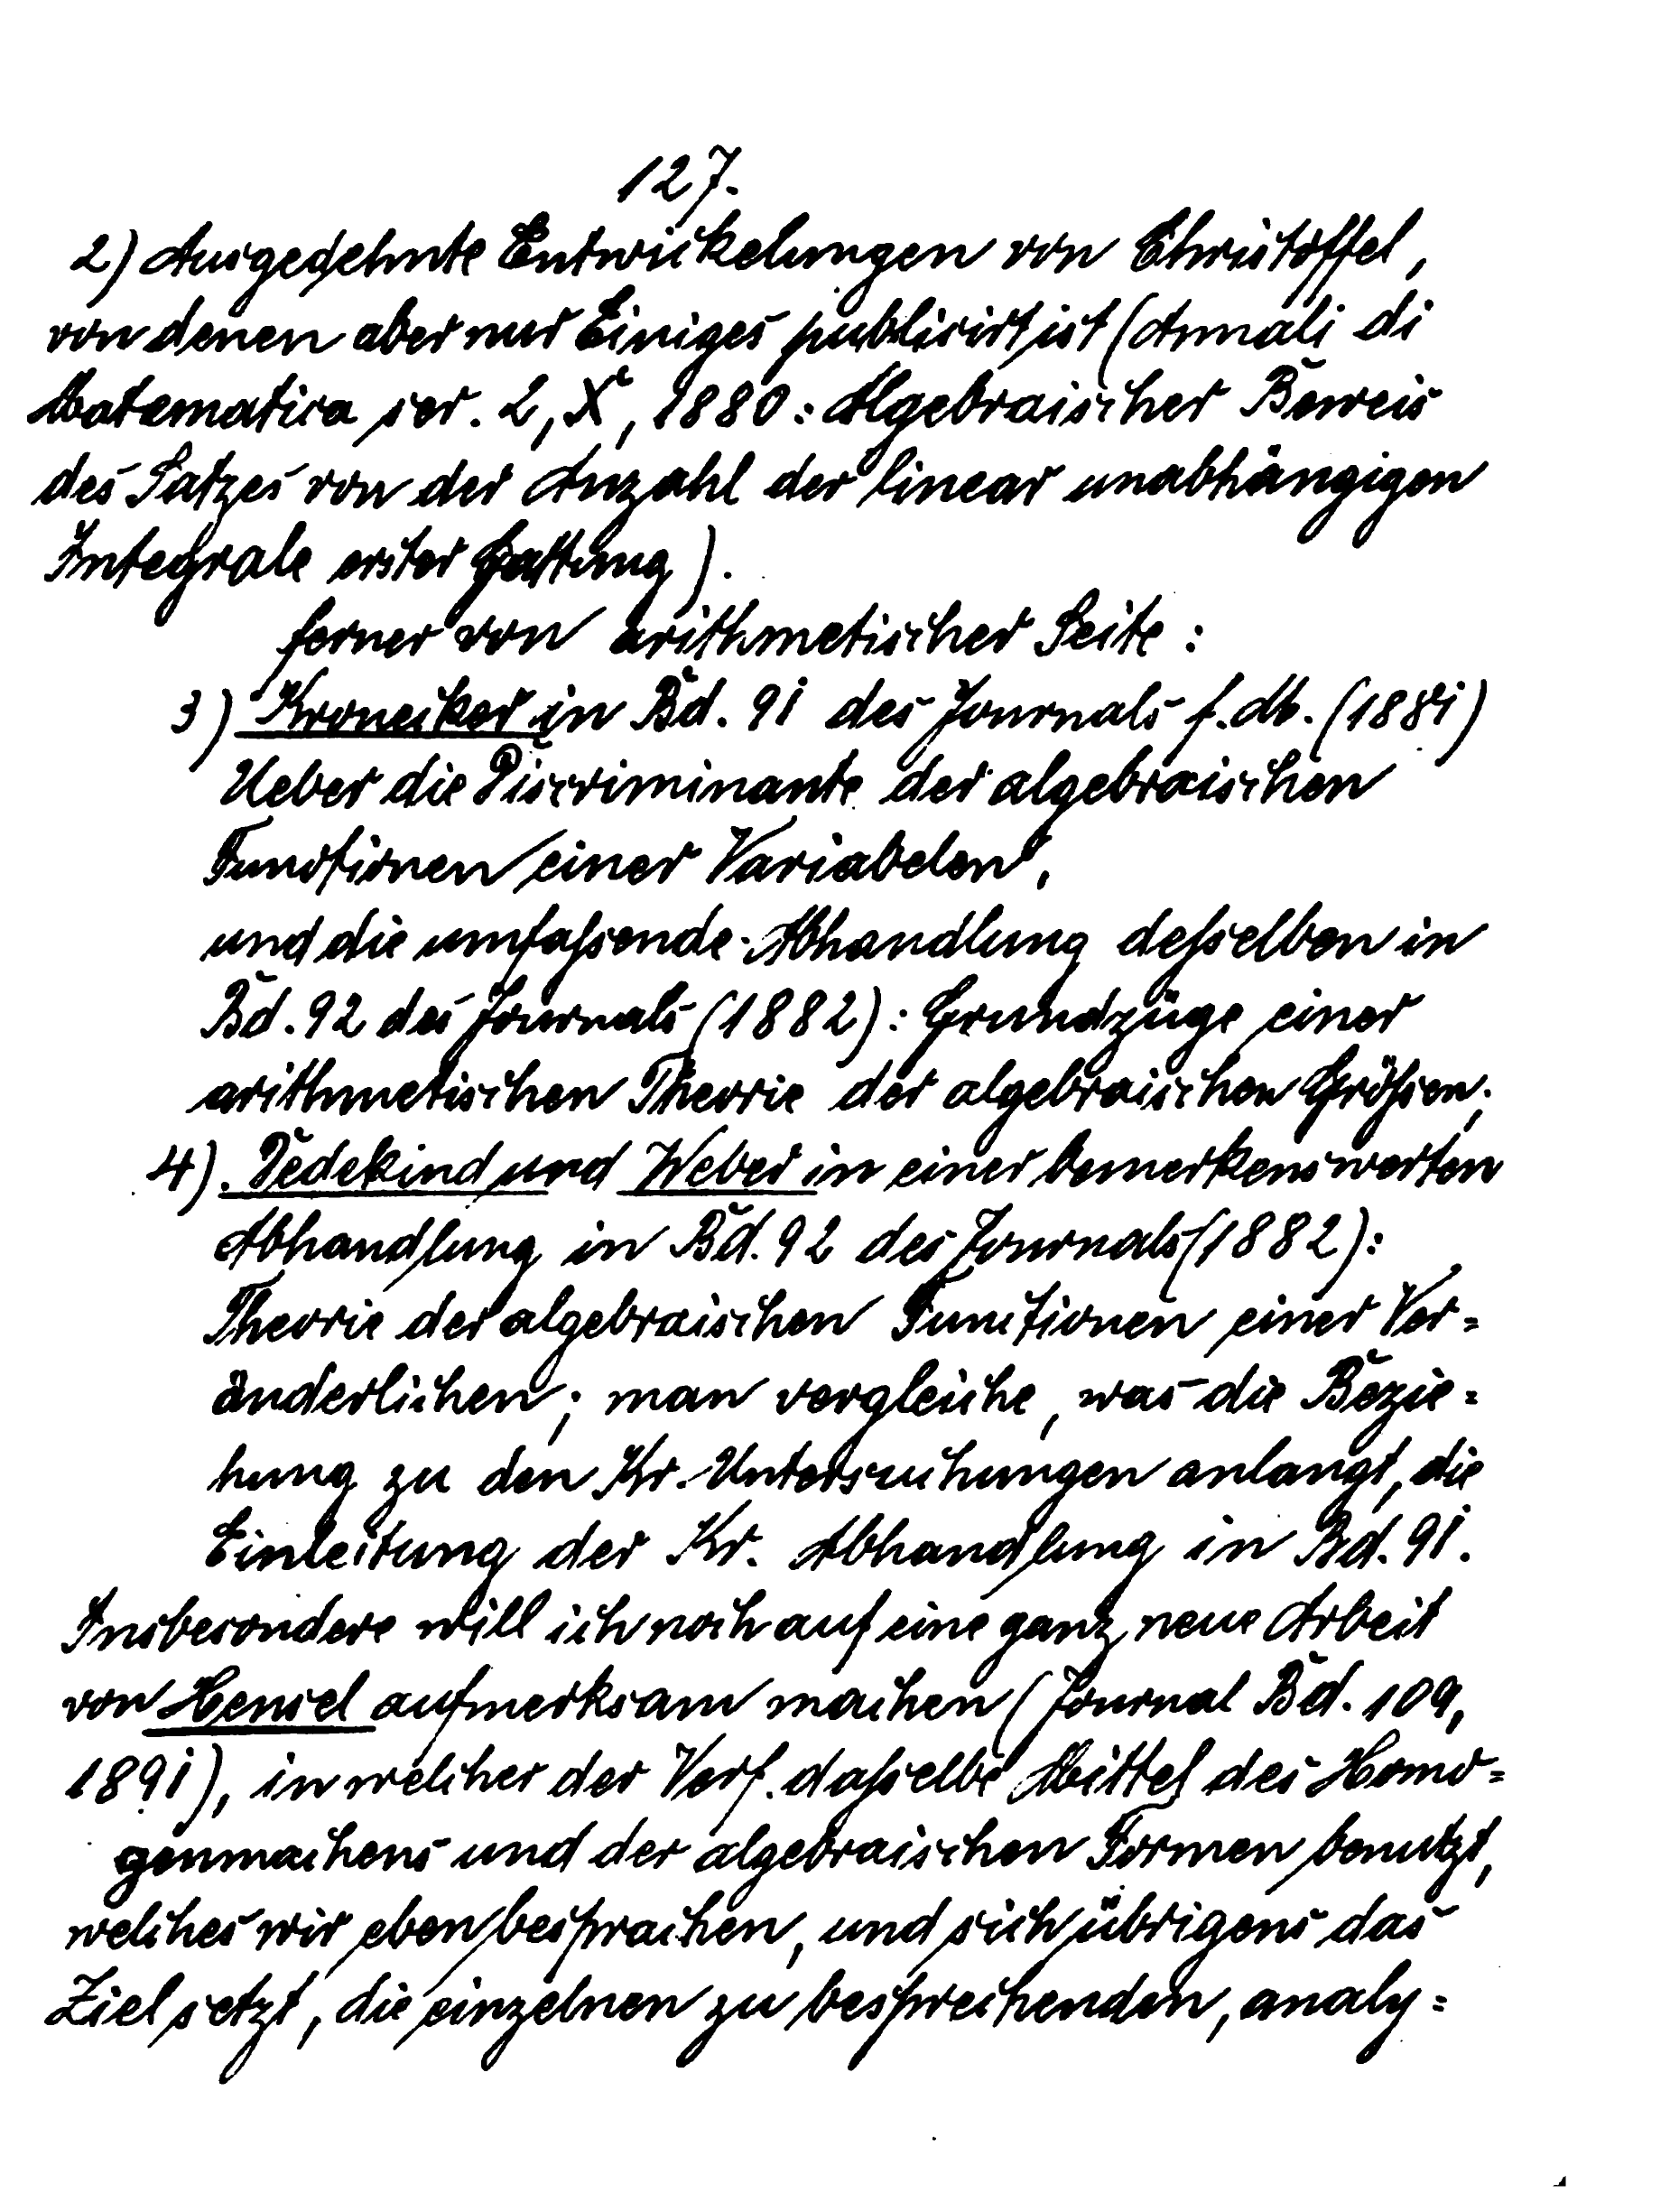 127.
2) Ausgedehnte Entwickelungen von Christoffel,
von denen aber nur Einiges publicirt ist (Annali di
Matematica ser. 2, X, 1880: Algebraischer Beweis
des Satzes von der Anzahl der linear unabhängigen
Integrale erster Gattung).
ferner von arithmetischer Seite:
3) Kronecker in Bd. 91 des Journals f. M. (1881)
Ueber die Discriminante der algebraischen
Functionen einer Variabelen,
und die umfaßende Abhandlung deßelben in
Bd. 92 des Journals (1882): Grundzüge einer
arithmetischen Theorie der algebraischen Größen;
4). Dedekind und Weber in einer bemerkenswerten
Abhandlung in Bd. 92 des Journals (1882):
Theorie der algebraischen Functionen einer Ver=
änderlichen; man vergleiche, was die Bezie=
hung zu den Kr. Untersuchungen anlangt, die
Einleitung der Kr. Abhandlung in Bd. 91.
Insbesondere will ich noch auf eine ganz neue Arbeit
von Hensel aufmerksam machen (Journal Bd. 109,
1891), in welcher der Verf. daßelbe Mittel des Homo=
genmachens und der algebraischen Formen benutzt,
welches wir eben besprachen, und sich übrigens das
Ziel setzt, die einzelnen zu besprechenden, analy=